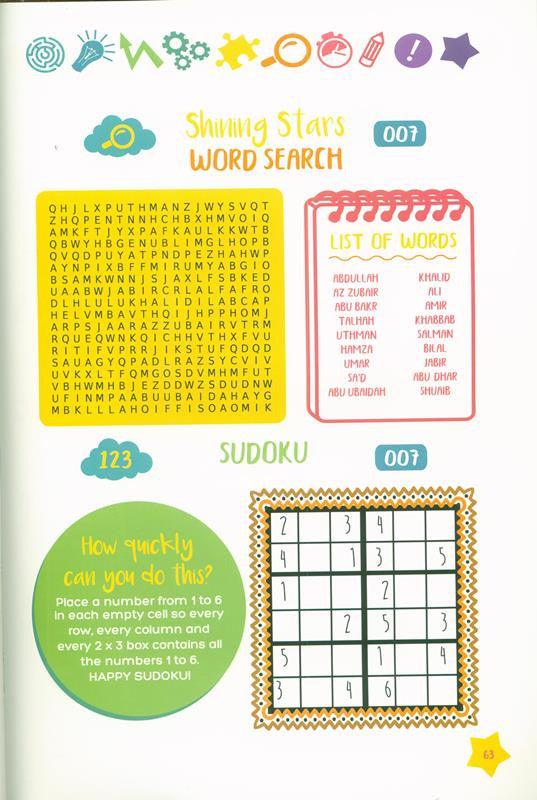 Shining Stars
WORD SEARCH
007
QHJLXPUTHMANZJWYSVQT
ZHQPENTNNHCHBXHMVOIQ
AMKFTJYXPAFKAULKKWTB
QBWYHBGENUBLIMGLHOPB
QVQDPUYATPNDPEZHAHWP
AYNPIXBFFMIRUMYABGIO
BSAMKWNNJSJAXLFSBKED
UAABWJABIRCRLALFAFRO
DLHLULUKHALIDILABCAP
HELVMBAVTHQIJHPPHOMJ
ARPSJAARAZZUBAIRVTRM
RQUEQWNKQICHHVTHXFVU
RITIFVPRRJIKSTUFQDQD
SAUAGYQPADLRAZSYCVIV
UVKXLTFQMGOSDVMHMFUT
VBHWMHBJEZDDWZSDUDNW
UFINMPAABUUBAIDAHAYG
MBKLLLAHOIFFISOAOMIK
LIST OF WORDS
ABDULLAH KHALID
AZ ZUBAIR ALI
ABU BAKR AMIR
TALHAH KHABBAB
UTHMAN SALMAN
HAMZA BILAL
UMAR JABIR
SA'D ABU DHAR
ABU UBAIDAH SHUAIB
123
SUDOKU
007
How quickly
can you do this?
Place a number from 1 to 6
in each empty cell so every
row, every column and
every 2 x 3 box contains all
the numbers 1 to 6.
HAPPY SUDOKU!
2 3 4
4 1 3 5
1 2
2 5 3
5 1 4
3 4 6
63